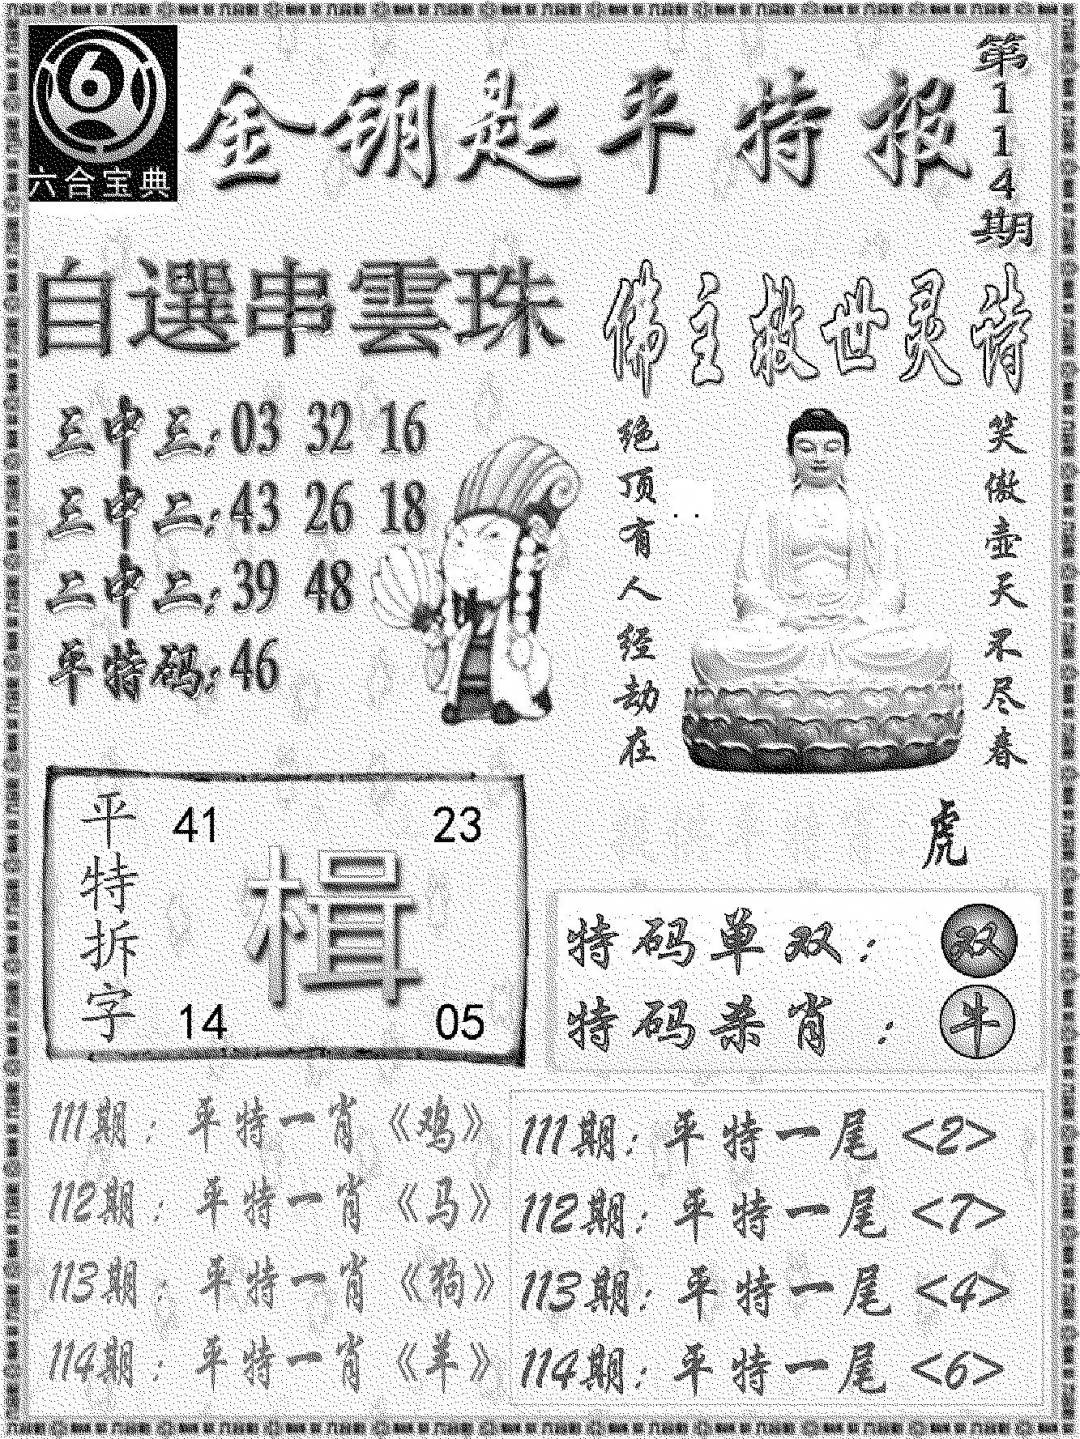 6
六合宝典
金钥匙平特报
第114期
自選串雲珠
三中三: 03 32 16
三中二: 43 26 18
二中二: 39 48
平特码: 46
佛主救世灵诗
笑傲壶天不尽春
绝顶有人经劫在
虎
平特拆字
41 23
楫
14 05
特码单双: 双
特码杀肖: 牛
111期: 平特一肖《鸡》
112期: 平特一肖《马》
113期: 平特一肖《狗》
114期: 平特一肖《羊》
111期: 平特一尾 <2>
112期: 平特一尾 <7>
113期: 平特一尾 <4>
114期: 平特一尾 <6>